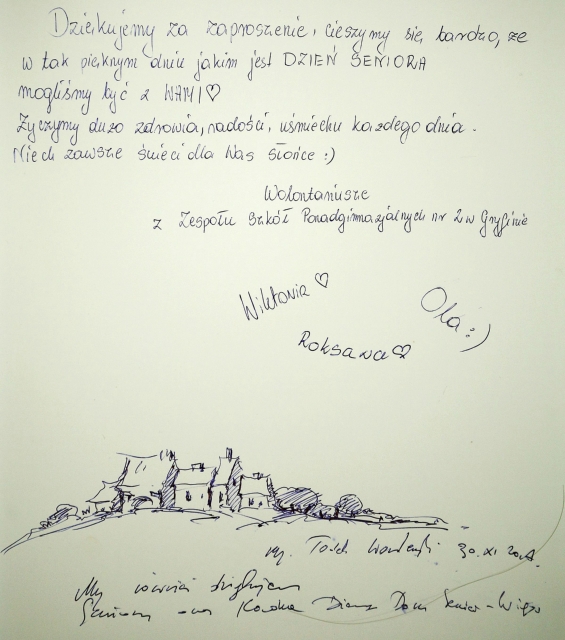 Dziękujemy za zaproszenie, cieszymy się bardzo, że
w tak pięknym dniu jakim jest DZIEŃ SENIORA
mogliśmy być z WAMI ♡
Życzymy dużo zdrowia, radości, uśmiechu każdego dnia.
Niech zawsze świeci dla Was słońce :)
Wolontariusze
z Zespołu Szkół Ponadgimnazjalnych nr 2 w Gryfinie
Wiktoria ♡
Ola :)
Roksana ♡
rys.
30.XI
My również dziękujemy
Dom Senior - Wigor